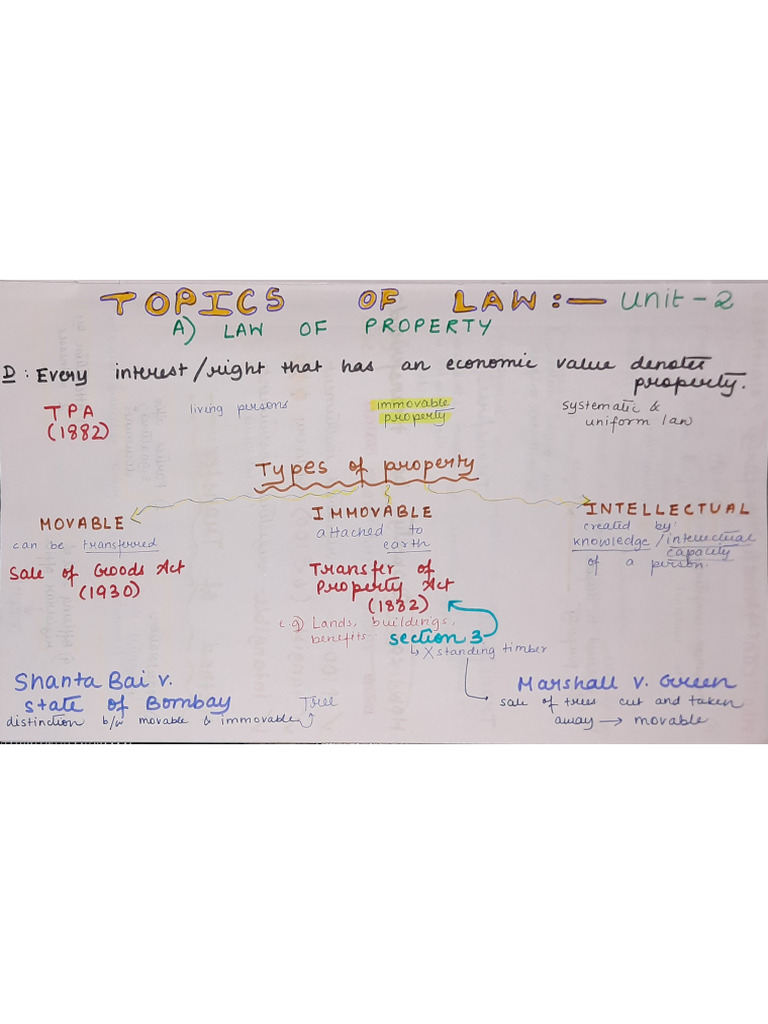 TOPICS OF LAW :— Unit - 2
A) LAW OF PROPERTY
D : Every interest/right that has an economic value denotes
property.
TPA
(1882)
living persons
immovable
property
systematic &
uniform law
Types of property
MOVABLE
can be transferred
Sale of Goods Act
(1930)
IMMOVABLE
attached to
earth
Transfer of
Property Act
(1882)
e.g) Lands, buildings,
benefits
section 3
↳ X standing timber
INTELLECTUAL
created by:
knowledge/intellectual
capacity
of a person.
Shanta Bai v.
State of Bombay
distinction b/w movable & immovable
Tree
Marshall v. Green
sale of trees cut and taken
away → movable